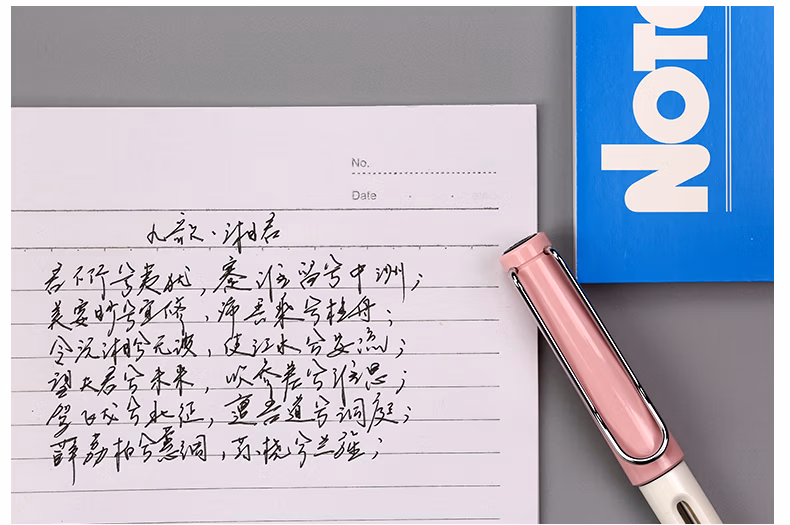 Note
No.
Date
九歌·湘君
君不行兮夷犹,蹇谁留兮中洲;
美要眇兮宜修,沛吾乘兮桂舟;
令沅湘兮无波,使江水兮安流;
望夫君兮未来,吹参差兮谁思;
驾飞龙兮北征,邅吾道兮洞庭;
薜荔柏兮蕙绸,荪桡兮兰旌;